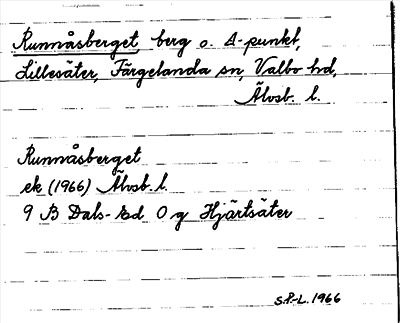 Runnåsberget, berg o. Δ-punkt,
Lillesäter, Färgelanda sn, Valbo hd,
Älvsb. l.
Runnåsberget
ek (1966) Älvsb. l.
9 B Dals-Ed 0 g Hjärtsäter
S.P-L. 1966